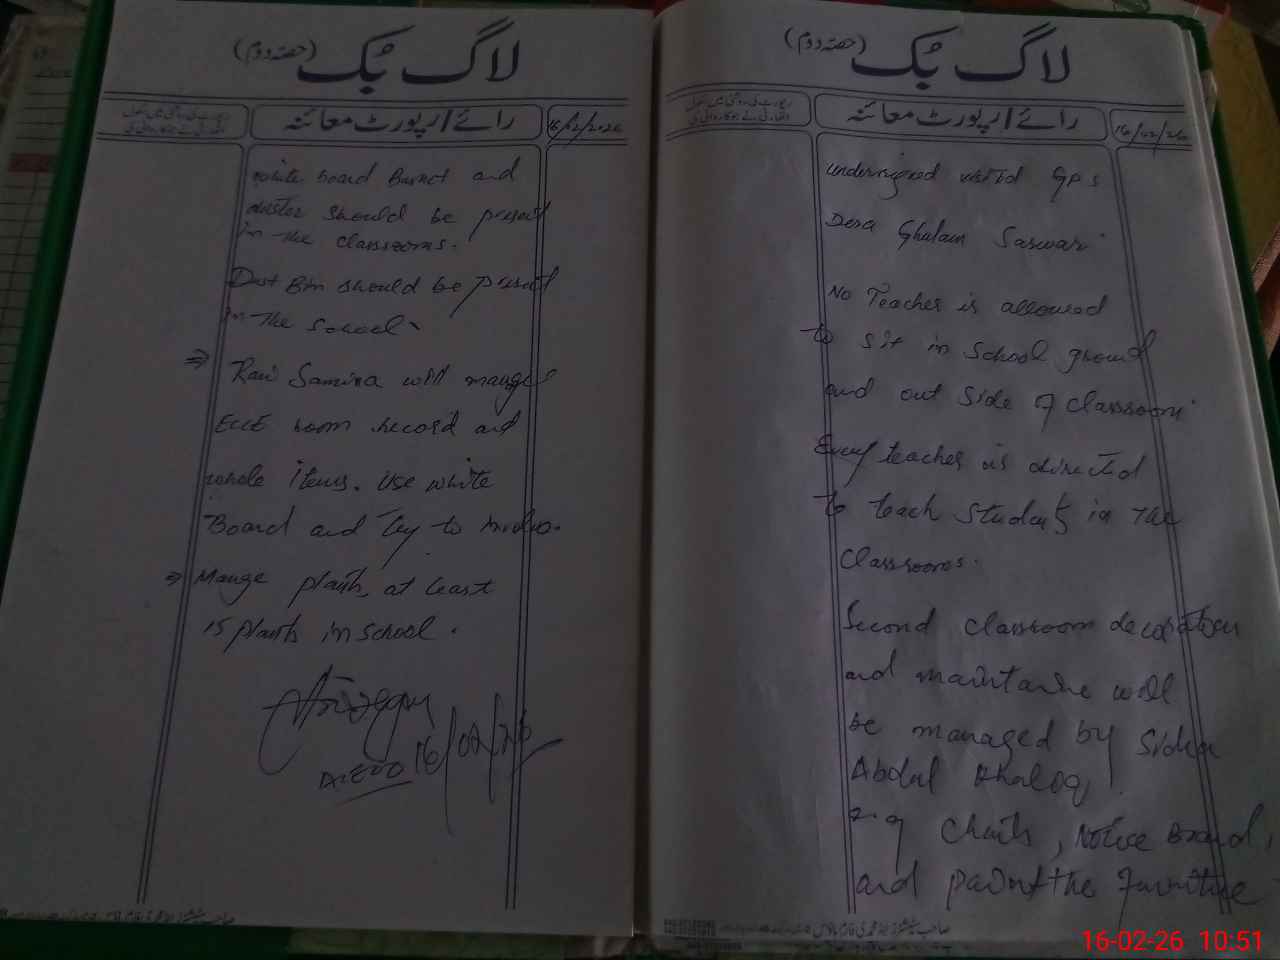 لاگ بُک (حصہ دوم)
رائے / رپورٹ معائنہ
16/02/26
undersigned visited GPS
Dera Ghulam Sarwar.
No Teacher is allowed
to sit in School ground
and out side of classroom.
Every teacher is directed
to teach students in the
classrooms.
Second classroom decoration
and maintaine will
be managed by Sidra
Abdul Khaliq.
e.g Charts, Notice Board,
and paint the furniture
لاگ بُک (حصہ دوم)
رائے / رپورٹ معائنہ
16/2/2026
white board Basket and
duster should be present
in the classrooms.
Dust Bin should be present
in the school.
⇒ Rani Samina will mange
ECCE room record and
whole items. Use white
Board and try to
⇒ Mange plants, at least
15 plants in school.
16/02/26
16-02-26 10:51